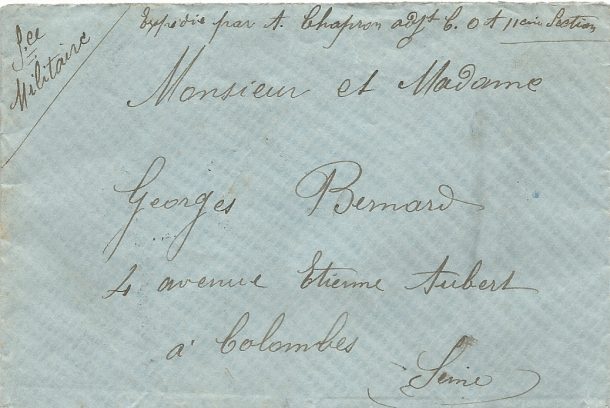 S.ce
Militaire
Expédié par A. Chapron adjt C. O A 11eme Section
Monsieur et Madame
Georges Bernard
4 avenue Etienne Aubert
à Colombes
Seine